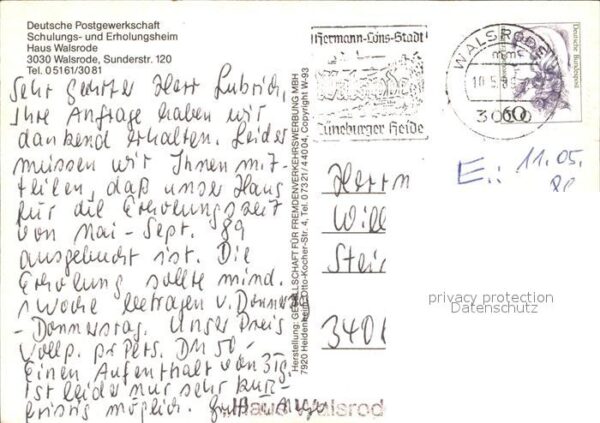 Deutsche Postgewerkschaft
Schulungs- und Erholungsheim
Haus Walsrode
3030 Walsrode, Sunderstr. 120
Tel. 05161/3081
Sehr geehrter Herr Lubrich,
Ihre Anfrage haben wir
dankend erhalten. Leider
müssen wir Ihnen mit-
teilen, daß unser Haus
für die Erholungszeit
von Mai - Sept. 89
ausgebucht ist. Die
Erholung sollte mind.
1 Woche betragen v. Donnerstag
- Donnerstag. Unser Preis
Vollp. pr Pers. DM 50-
Einen Aufenthalt von 3 Tg.
ist leider nur sehr kurz-
fristig möglich.
Haus Walsrode
Herstellung: GESELLSCHAFT FÜR FREMDENVERKEHRSWERBUNG MBH
7920 Heidenheim, Otto-Kocher-Str. 4, Tel. 07321/44004, Copyright W-93
Hermann-Löns-Stadt
Walsrode
Lüneburger Heide
WALSRODE
mm
3030
60
Deutsche Bundespost
E.: 11.05.
Herrn
Will
Stein
340
privacy protection
Datenschutz